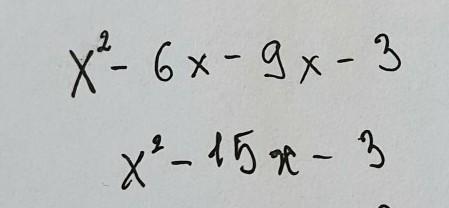 x² - 6x - 9x - 3
x² - 15x - 3